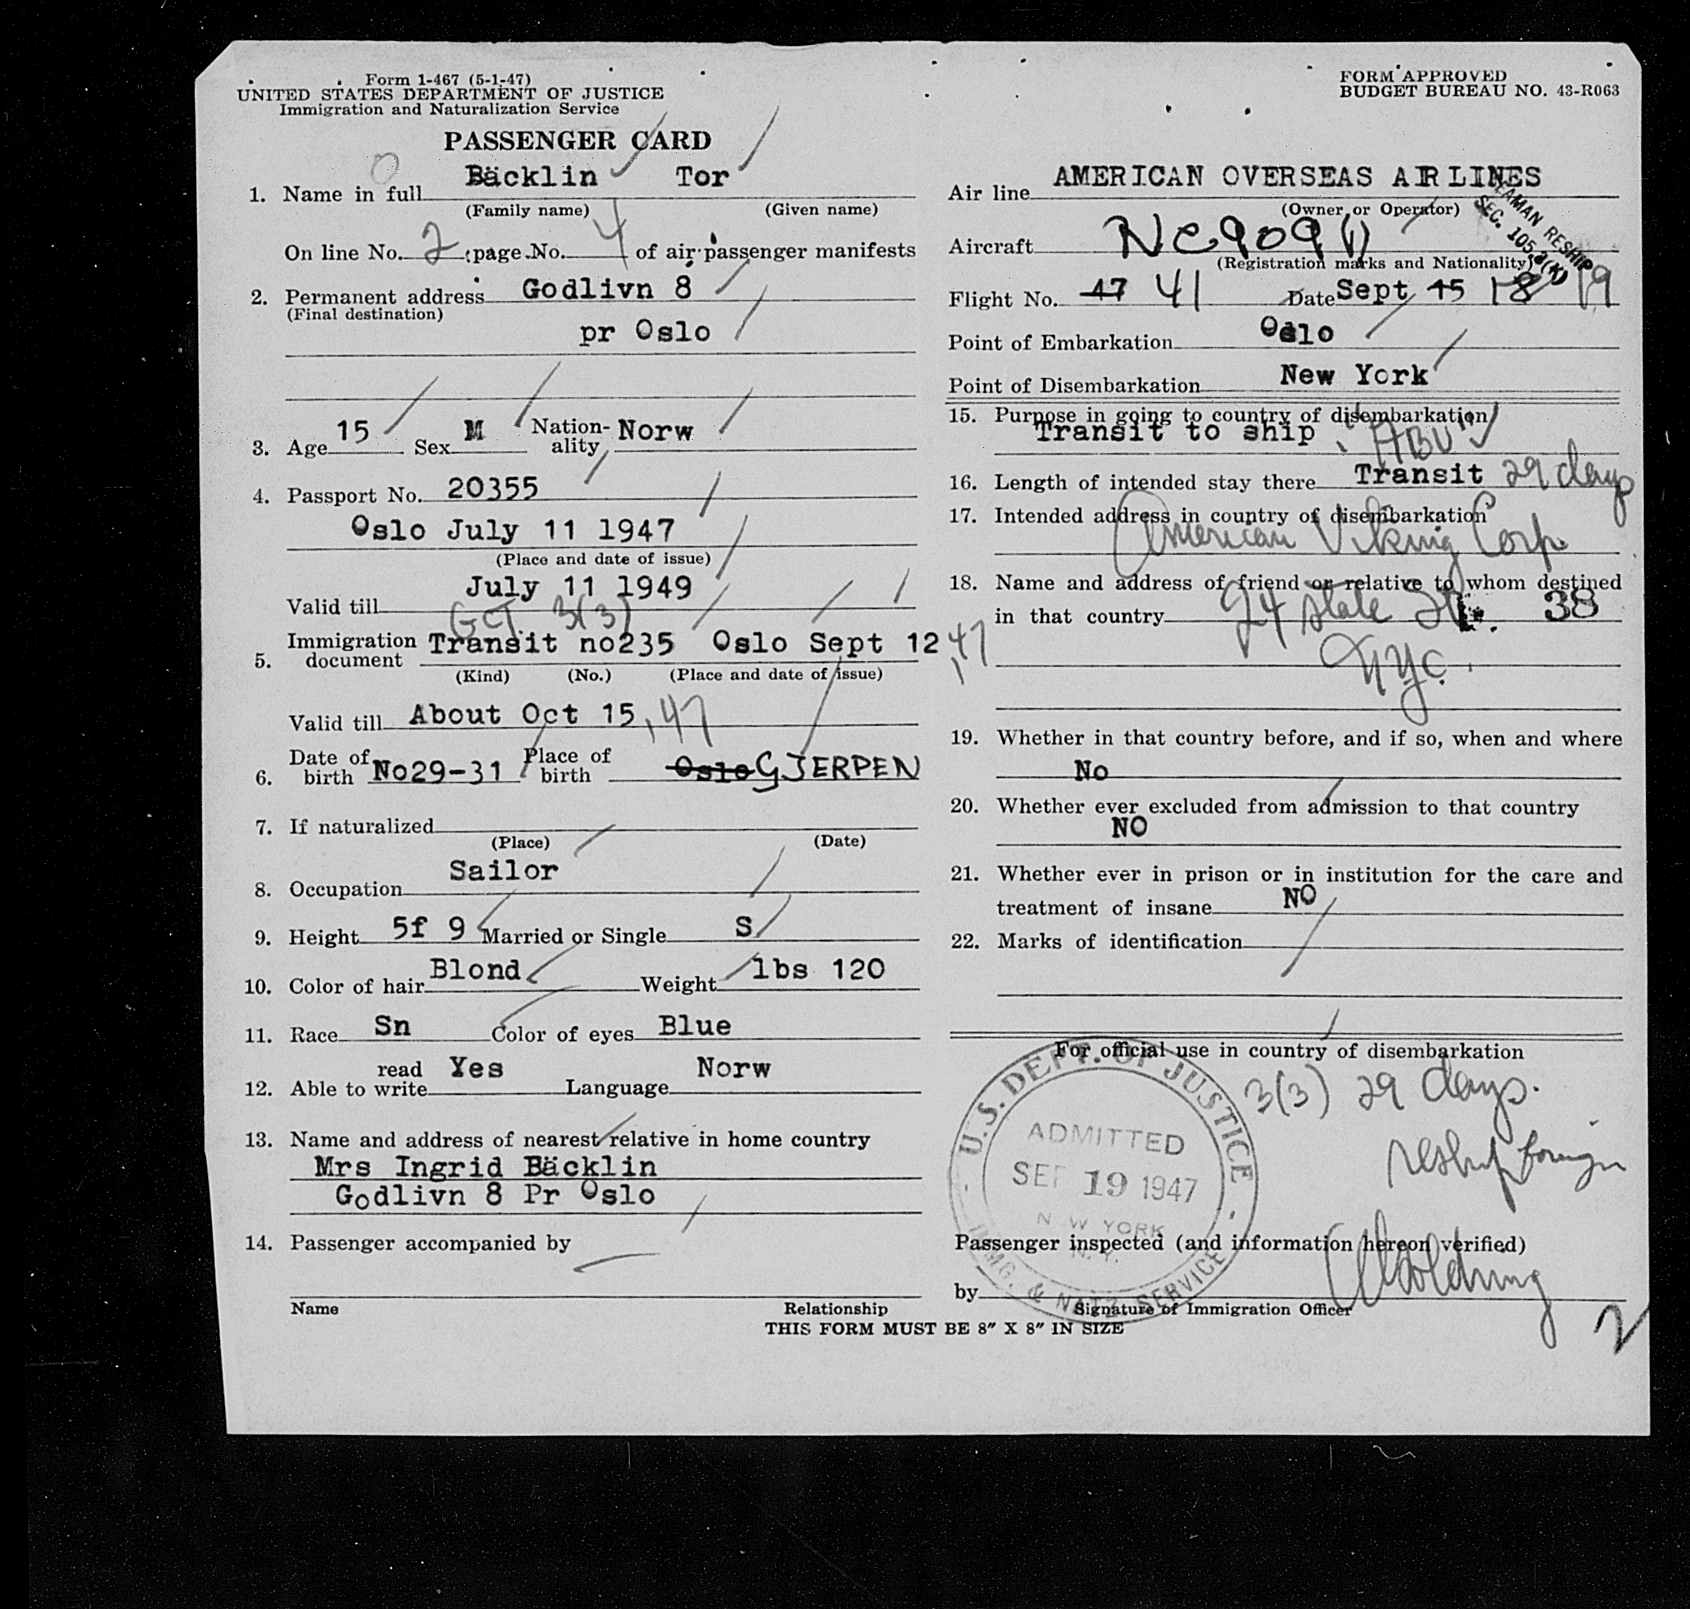 Form I-467 (5-1-47)
UNITED STATES DEPARTMENT OF JUSTICE
Immigration and Naturalization Service
PASSENGER CARD
1. Name in full Bäcklin Tor
(Family name) (Given name)
On line No. 2, page No. 4 of air passenger manifests
2. Permanent address Godlivn 8
(Final destination)
pr Oslo
3. Age 15 Sex M Nation-ality Norw
4. Passport No. 20355
Oslo July 11 1947
(Place and date of issue)
Valid till July 11 1949
GCT. 3(3)
5. Immigration document Transit no235 Oslo Sept 12 47
(Kind) (No.) (Place and date of issue)
Valid till About Oct 15, 47
6. Date of birth No29-31 Place of birth Oslo GJERPEN
7. If naturalized
(Place) (Date)
8. Occupation Sailor
9. Height 5f 9 Married or Single S
10. Color of hair Blond Weight lbs 120
11. Race Sn Color of eyes Blue
12. Able to read write Yes Language Norw
13. Name and address of nearest relative in home country
Mrs Ingrid Bäcklin
Godlivn 8 Pr Oslo
14. Passenger accompanied by
Name Relationship
THIS FORM MUST BE 8" X 8" IN SIZE
FORM APPROVED
BUDGET BUREAU NO. 43-R063
Air line AMERICAN OVERSEAS AIRLINES
(Owner or Operator)
RESHIP
SEC. 105
Aircraft NC909
(Registration marks and Nationality)
Flight No. 47 41 Date Sept 15 18 19
Point of Embarkation Oslo
Point of Disembarkation New York
15. Purpose in going to country of disembarkation
Transit to ship "ABU"
16. Length of intended stay there Transit 29 days
17. Intended address in country of disembarkation
American Viking Corp
18. Name and address of friend or relative to whom destined
in that country 24 State St. 38
NYC.
19. Whether in that country before, and if so, when and where
No
20. Whether ever excluded from admission to that country
NO
21. Whether ever in prison or in institution for the care and
treatment of insane NO
22. Marks of identification
For official use in country of disembarkation
3(3) 29 days.
reship foreign
U.S. DEPT. OF JUSTICE
ADMITTED
SEP 19 1947
NEW YORK
N.Y.
IMMG. & NATZ. SERVICE
Passenger inspected (and information hereon verified)
by
Signature of Immigration Officer
2